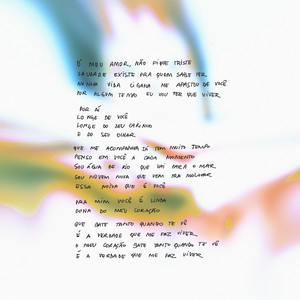 É MEU AMOR, NÃO FIQUE TRISTE
SAUDADE EXISTE PRA QUEM SABE TER
MINHA VIDA CIGANA ME AFASTOU DE VOCÊ
POR ALGUM TEMPO EU VOU TER QUE VIVER
POR AÍ
LONGE DE VOCÊ
LONGE DO SEU CARINHO
E DO SEU OLHAR
QUE ME ACOMPANHA JÁ TEM MUITO TEMPO
PENSO EM VOCÊ A CADA MOMENTO
SOU ÁGUA DE RIO QUE VAI PARA O MAR
SOU NUVEM NOVA QUE VEM PRA MOLHAR
ESSA NOIVA QUE É VOCÊ
PRA MIM VOCÊ É LINDA
DONA DO MEU CORAÇÃO
QUE BATE TANTO QUANDO TE VÊ
É A VERDADE QUE ME FAZ VIVER
O MEU CORAÇÃO BATE TANTO QUANDO TE VÊ
É A VERDADE QUE ME FAZ VIVER